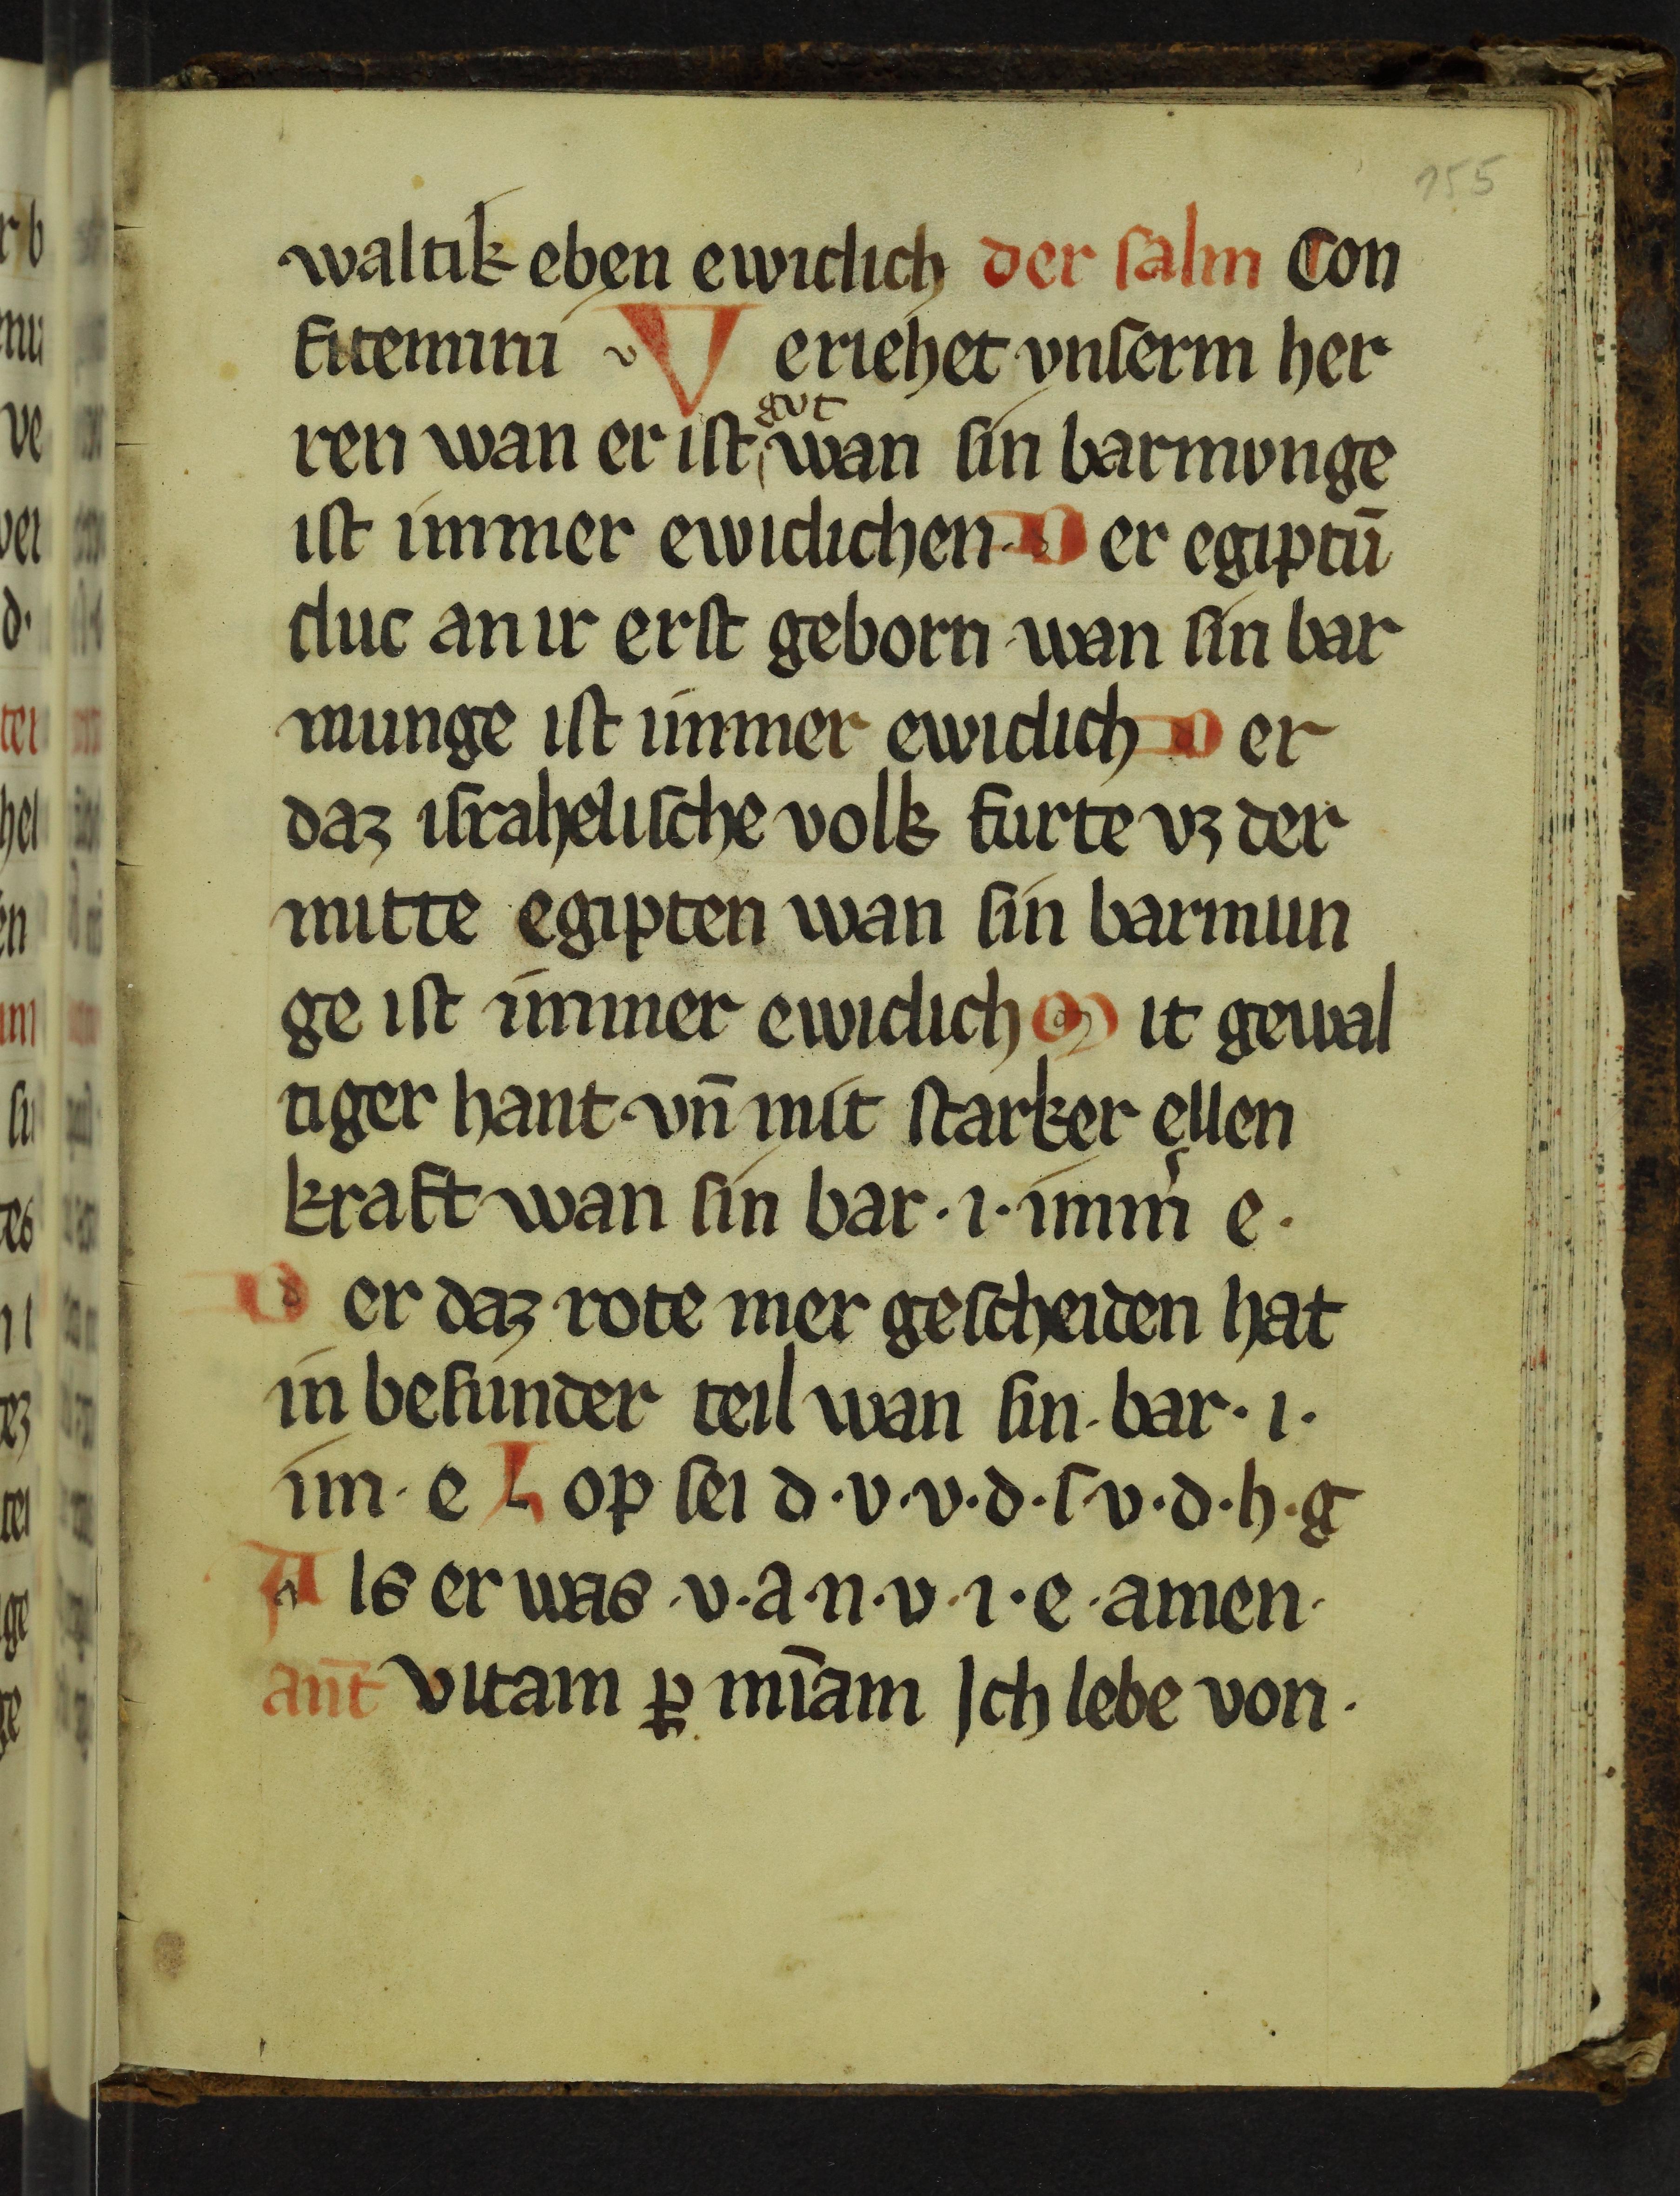 155
waltik eben ewiclich der salm Con
fitemini Veriehet vnserm her
ren wan er ist gvt wan sin barmvnge
ist immer ewiclichen Der egiptū
cluc an ir erst geborn wan sin bar
munge ist immer ewiclich Der
daz israhelische volk furte vz der
mitte egipten wan sin barmun
ge ist immer ewiclich Mit gewal
tiger hant vn̄ mit starker ellen
kraft wan sin bar · i · imm͛ e ·
Der daz rote mer gescheiden hat
in besunder teil wan sin · bar · i ·
im · e Lop sei d · v · v · d · s · v · d · h · g
Als er was · v · a · n · v · i · e · amen ·
an̄t vitam ꝑ mīam Ich lebe von ·